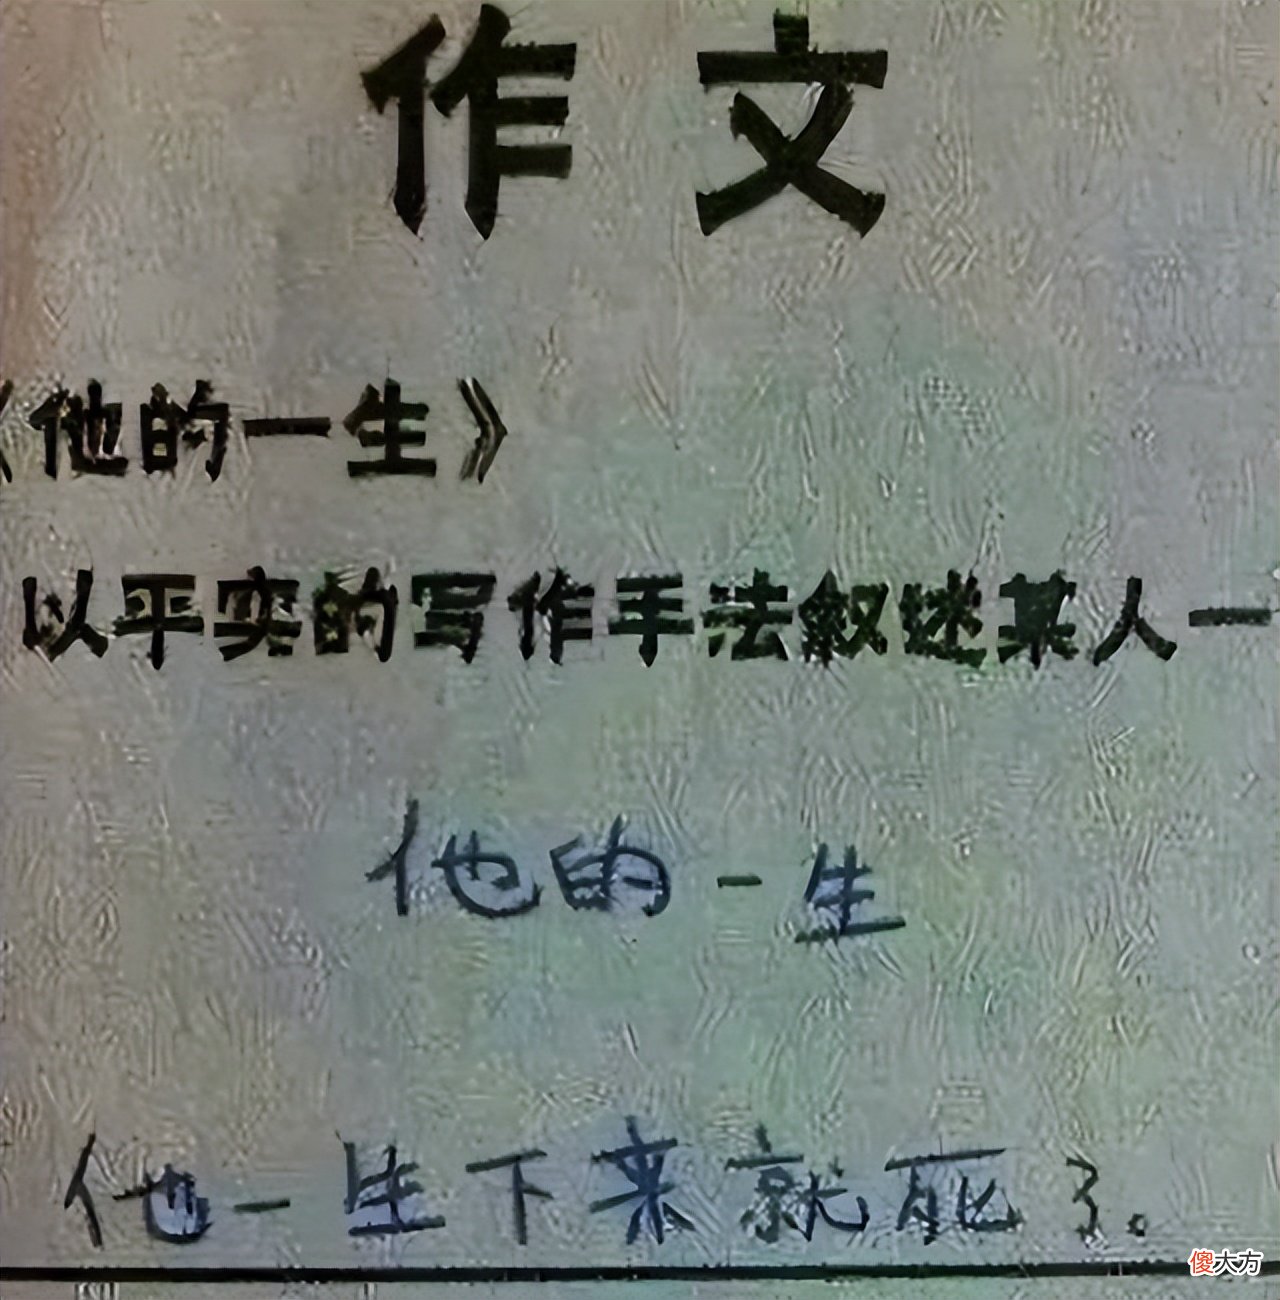 作文
《他的一生》
以平实的写作手法叙述某人一
他的一生
他一生下来就死了。
傻大方